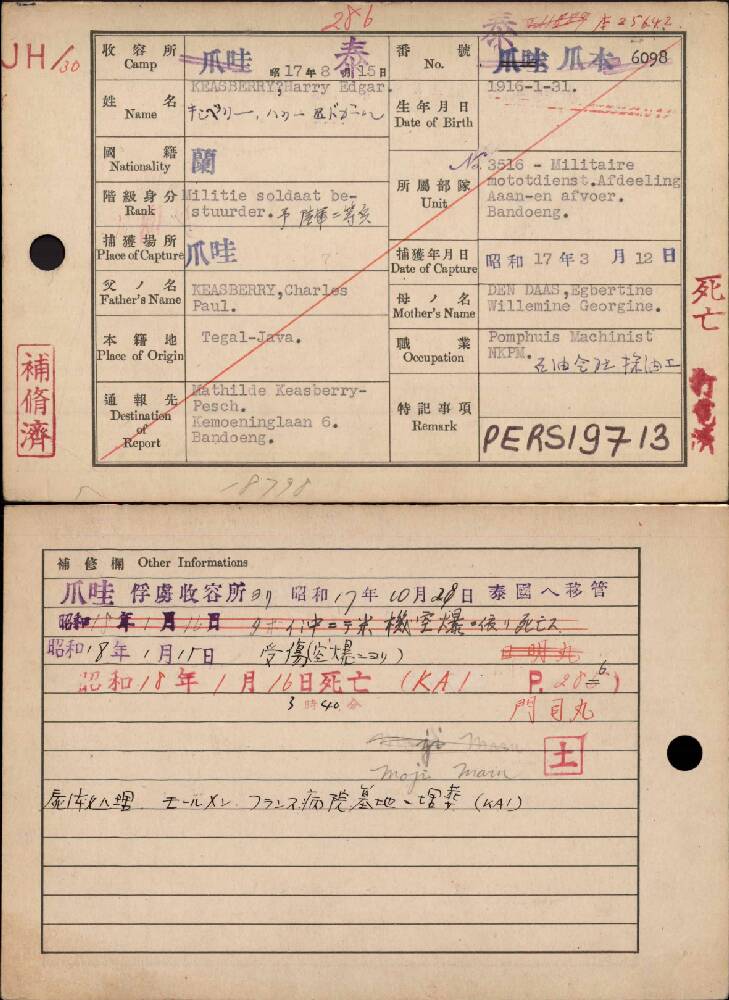 286
泰
本25642
JH/30
收容所 Camp 爪哇 昭17年8月15日 泰
番號 No. 爪哇 爪本 6098
姓名 Name KEASBERRY,Harry Edgar.
生年月日 Date of Birth 1916-1-31.
國籍 Nationality 蘭
所屬部隊 Unit No 3516 - Militaire
mototdienst.Afdeeling
Aaan-en afvoer.
Bandoeng.
階級身分 Rank Militie soldaat be-
stuurder.
捕獲場所 Place of Capture 爪哇
捕獲年月日 Date of Capture 昭和17年3月12日
父ノ名 Father's Name KEASBERRY,Charles
Paul.
母ノ名 Mother's Name DEN DAAS,Egbertine
Willemine Georgine.
死亡
本籍地 Place of Origin Tegal-Java.
職業 Occupation Pomphuis Machinist
NKPM.
石油会社採油工
補脩濟
通報先 Destination of Report Mathilde Keasberry-
Pesch.
Kemoeninglaan 6.
Bandoeng.
特記事項 Remark PERS19713
18798
補修欄 Other Informations
爪哇俘虜收容所ヨリ 昭和17年10月28日泰國へ移管
昭和18年1月16日
機空爆ニ依リ死亡ス
昭和18年1月15日 受傷(空爆ニヨリ)
昭和18年1月16日死亡 (KAI P. 286)
3時40分
門司丸
Maru
土
Moji Maru
屍体処理 モールメン フランス病院墓地ニ埋葬 (KAI)